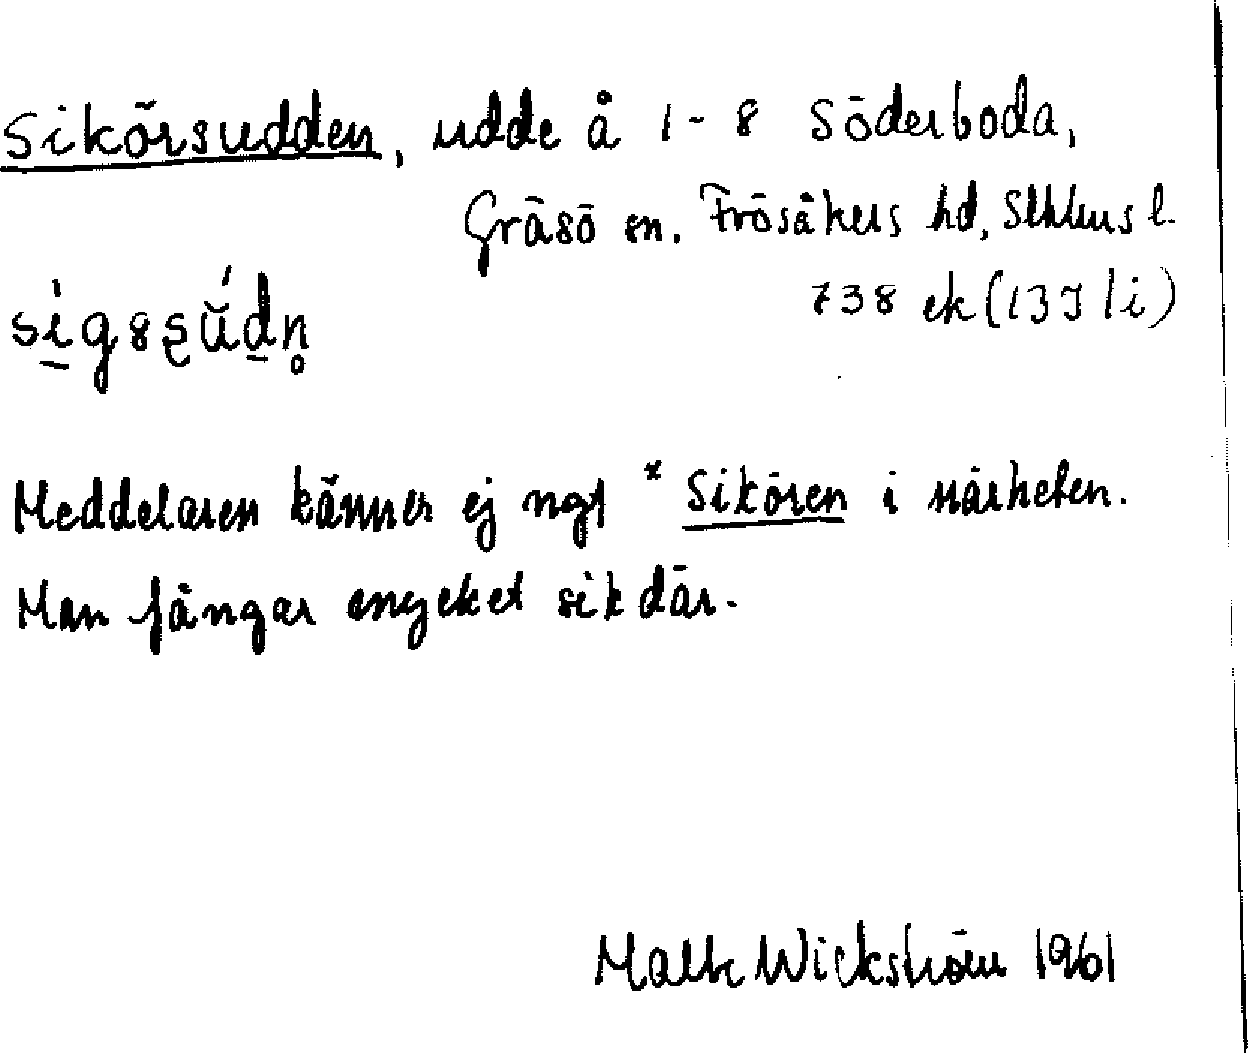 Sikörsudden, udde å 1-8 Söderboda,
Gräsö sn. Frösåkers hd, Sthlms l.
738 ek (13J 1i)
Meddelaren känner ej ngt *Sikören i närheten.
Man fångar mycket sik där.
Wickström 1961